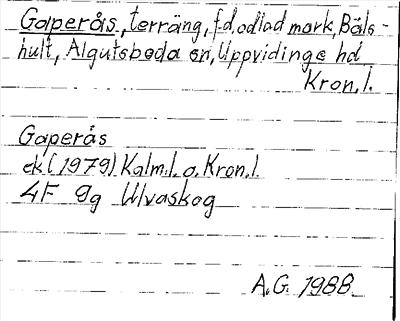 Gaperås, terräng, f.d. odlad mark, Bäls-
hult, Algutsboda sn, Uppvidinge hd
Kron.l.
Gaperås
ek (1979) Kalm.l. o. Kron.l.
4F 9g Ulvaskog
A.G. 1988